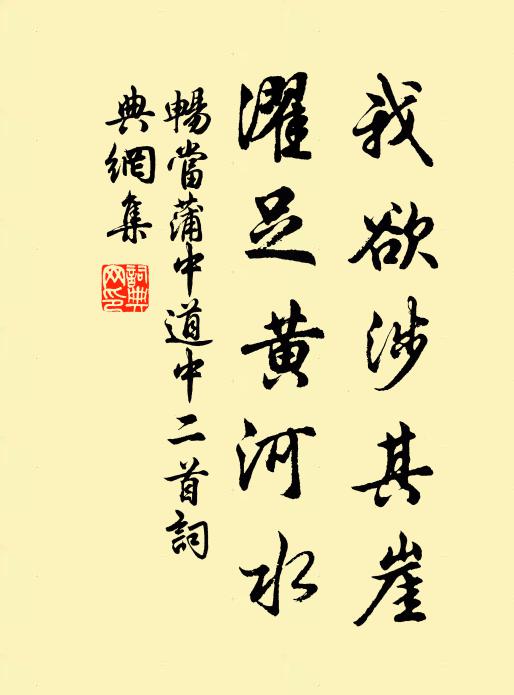 我欲涉其崖
濯足黄河水
暢當蒲中道中二首詞
典網集
詞典
网印